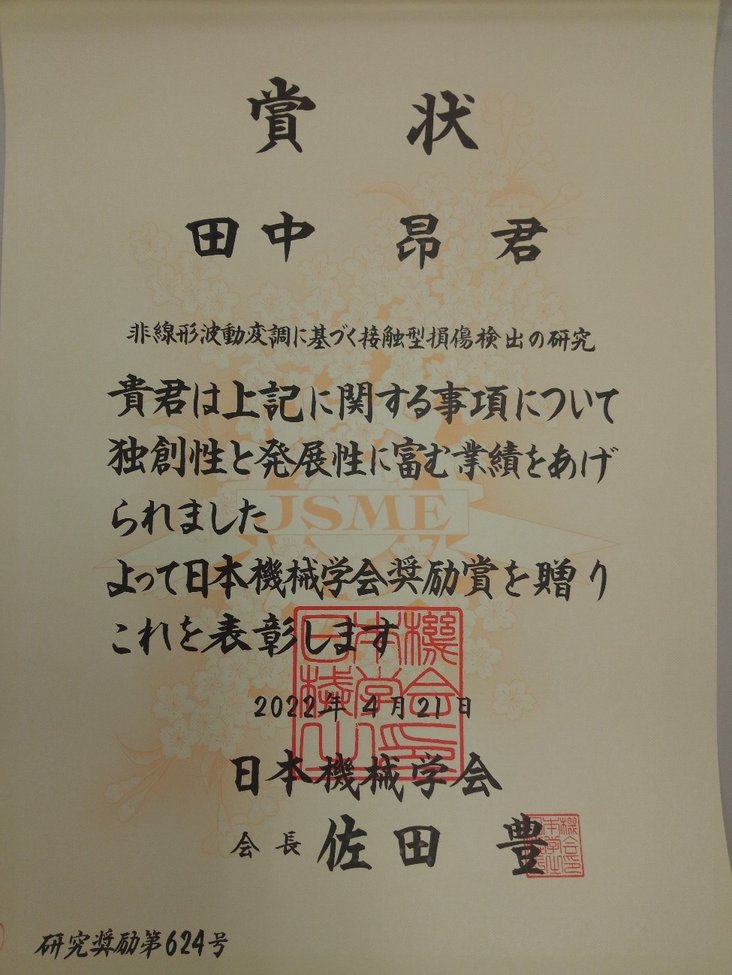 賞状
田中 昂 君
非線形波動変調に基づく接触型損傷検出の研究
貴君は上記に関する事項について
独創性と発展性に富む業績をあげ
られました
JSME
よって日本機械学会奨励賞を贈り
これを表彰します
2022年4月21日
日本機械学会
会長 佐田 豊
研究奨励第624号